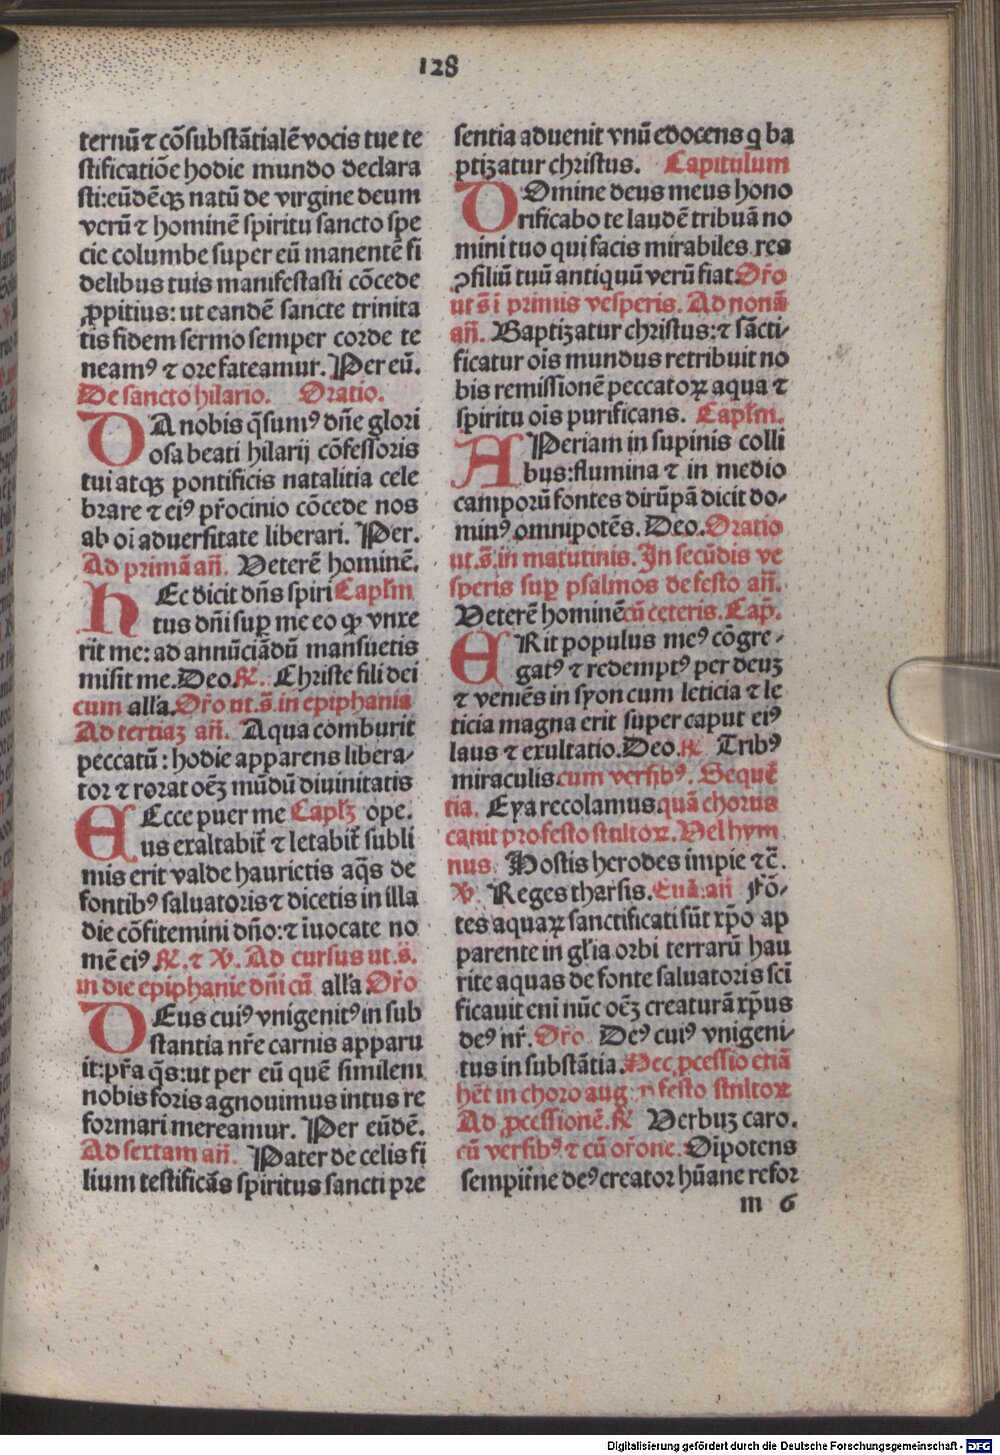 128
ternū ⁊ cōsubstātialē vocis tue te
stificatiōe hodie mundo declara
sti:eūdēqꝫ natū de virgine deum
verū ⁊ hominē spiritu sancto spe
cie columbe super eū manentē fi
delibus tuis manifestasti cōcede
ꝓpitius: ut eandē sancte trinita
tis fidem sermo semper corde te
neamꝰ ⁊ ore fateamur. Per eū.
De sancto hilario. Oratio.
DA nobis q̄sumꝰ dn̄e glori
osa beati hilarij cōfessoris
tui atqꝫ pontificis natalitia cele
brare ⁊ eiꝰ pr̄ocinio cōcede nos
ab oī aduersitate liberari. Per.
Ad primā an̄. Veterē hominē.
HEc dicit dn̄s spiri Capl̄m
tus dn̄i suꝑ me eo ꝙ vnxe
rit me: ad annūciādū mansuetis
misit me. Deo. ℟. Christe fili dei
cum all̄a. Or̄o ut.s̄. in epiphania
Ad tertiaꝫ an̄. Aqua comburit
peccatū: hodie apparens libera-
tor ⁊ rorat oēꝫ mūdū diuinitatis
EEcce puer me Capl̄ꝫ ope.
us exaltabit̄ ⁊ leuabit̄ subli
mis erit valde haurietis aq̄s de
fontibꝰ saluatoris ⁊ dicetis in illa
die cōfitemini dn̄o: ⁊ īuocate no
mē eiꝰ ℟. ⁊ ℣. Ad cursus ut.s̄.
in die epiphanie dn̄i cū all̄a Or̄o
DEus cuiꝰ vnigenitꝰ in sub
stantia nr̄e carnis apparu
it:pr̄a q̄s:ut per eū quē similem
nobis foris agnouimus intus re
formari mereamur. Per eūdē.
Ad sextam an̄. Pater de celis fi
lium testificās spiritus sancti pre
sentia aduenit vnū edocens q̨ ba
ptizatur christus. Capitulum
DOmine deus meus hono
rificabo te laudē tribuā no
mini tuo qui facis mirabiles res
ꝯsiliū tuū antiquū verū fiat. Or̄o
ut s̄ ī primis vesperis. Ad nonā
an̄. Baptizatur christus: ⁊ sācti-
ficatur ois mundus retribuit no
bis remissionē peccatoꝝ aqua ⁊
spiritu oīs purificans. Capl̄m.
APeriam in supinis colli
bus: flumina ⁊ in medio
camporū fontes dirūpā dicit do-
minꝰ omnipotēs. Deo. Oratio
ut.s̄.in matutinis. In secūdis ve
speris suꝑ psalmos de festo an̄.
Veterē hominē cū ceteris. Cap̄.
ERit populus meꝰ cōgre-
gatꝰ ⁊ redemptꝰ per deuꝫ
⁊ veniēs in syon cum leticia ⁊ le
ticia magna erit super caput eiꝰ
laus ⁊ exultatio. Deo. ℟. Tribꝰ
miraculis. cum versibꝰ. Sequē
tia. Eya recolamus. quā chorus
canit pro festo stultoꝝ. Vel hym
nus. Hostis herodes impie ⁊c̄.
℣. Reges tharsis. Euā. an̄ Fō-
tes aquaꝝ sanctificati sūt xp̄o ap
parente in gl̄ia orbi terrarū hau
rite aquas de fonte saluatoris sc̄i
ficauit enī nūc oēꝫ creaturā xp̄us
deꝰ nr̄. Or̄o Deꝰ cuiꝰ vnigeni-
tus in substātia. Nec ꝓcessio etiā
hēt in choro aug. ꝓ festo stultoꝝ
Ad ꝓcessionē. ℟ Verbuꝫ caro.
cū versibꝰ ⁊ cū or̄one. Oīpotens
sempit̄ne deꝰ creator hūane refor
m 6
Digitalisierung gefördert durch die Deutsche Forschungsgemeinschaft - DFG